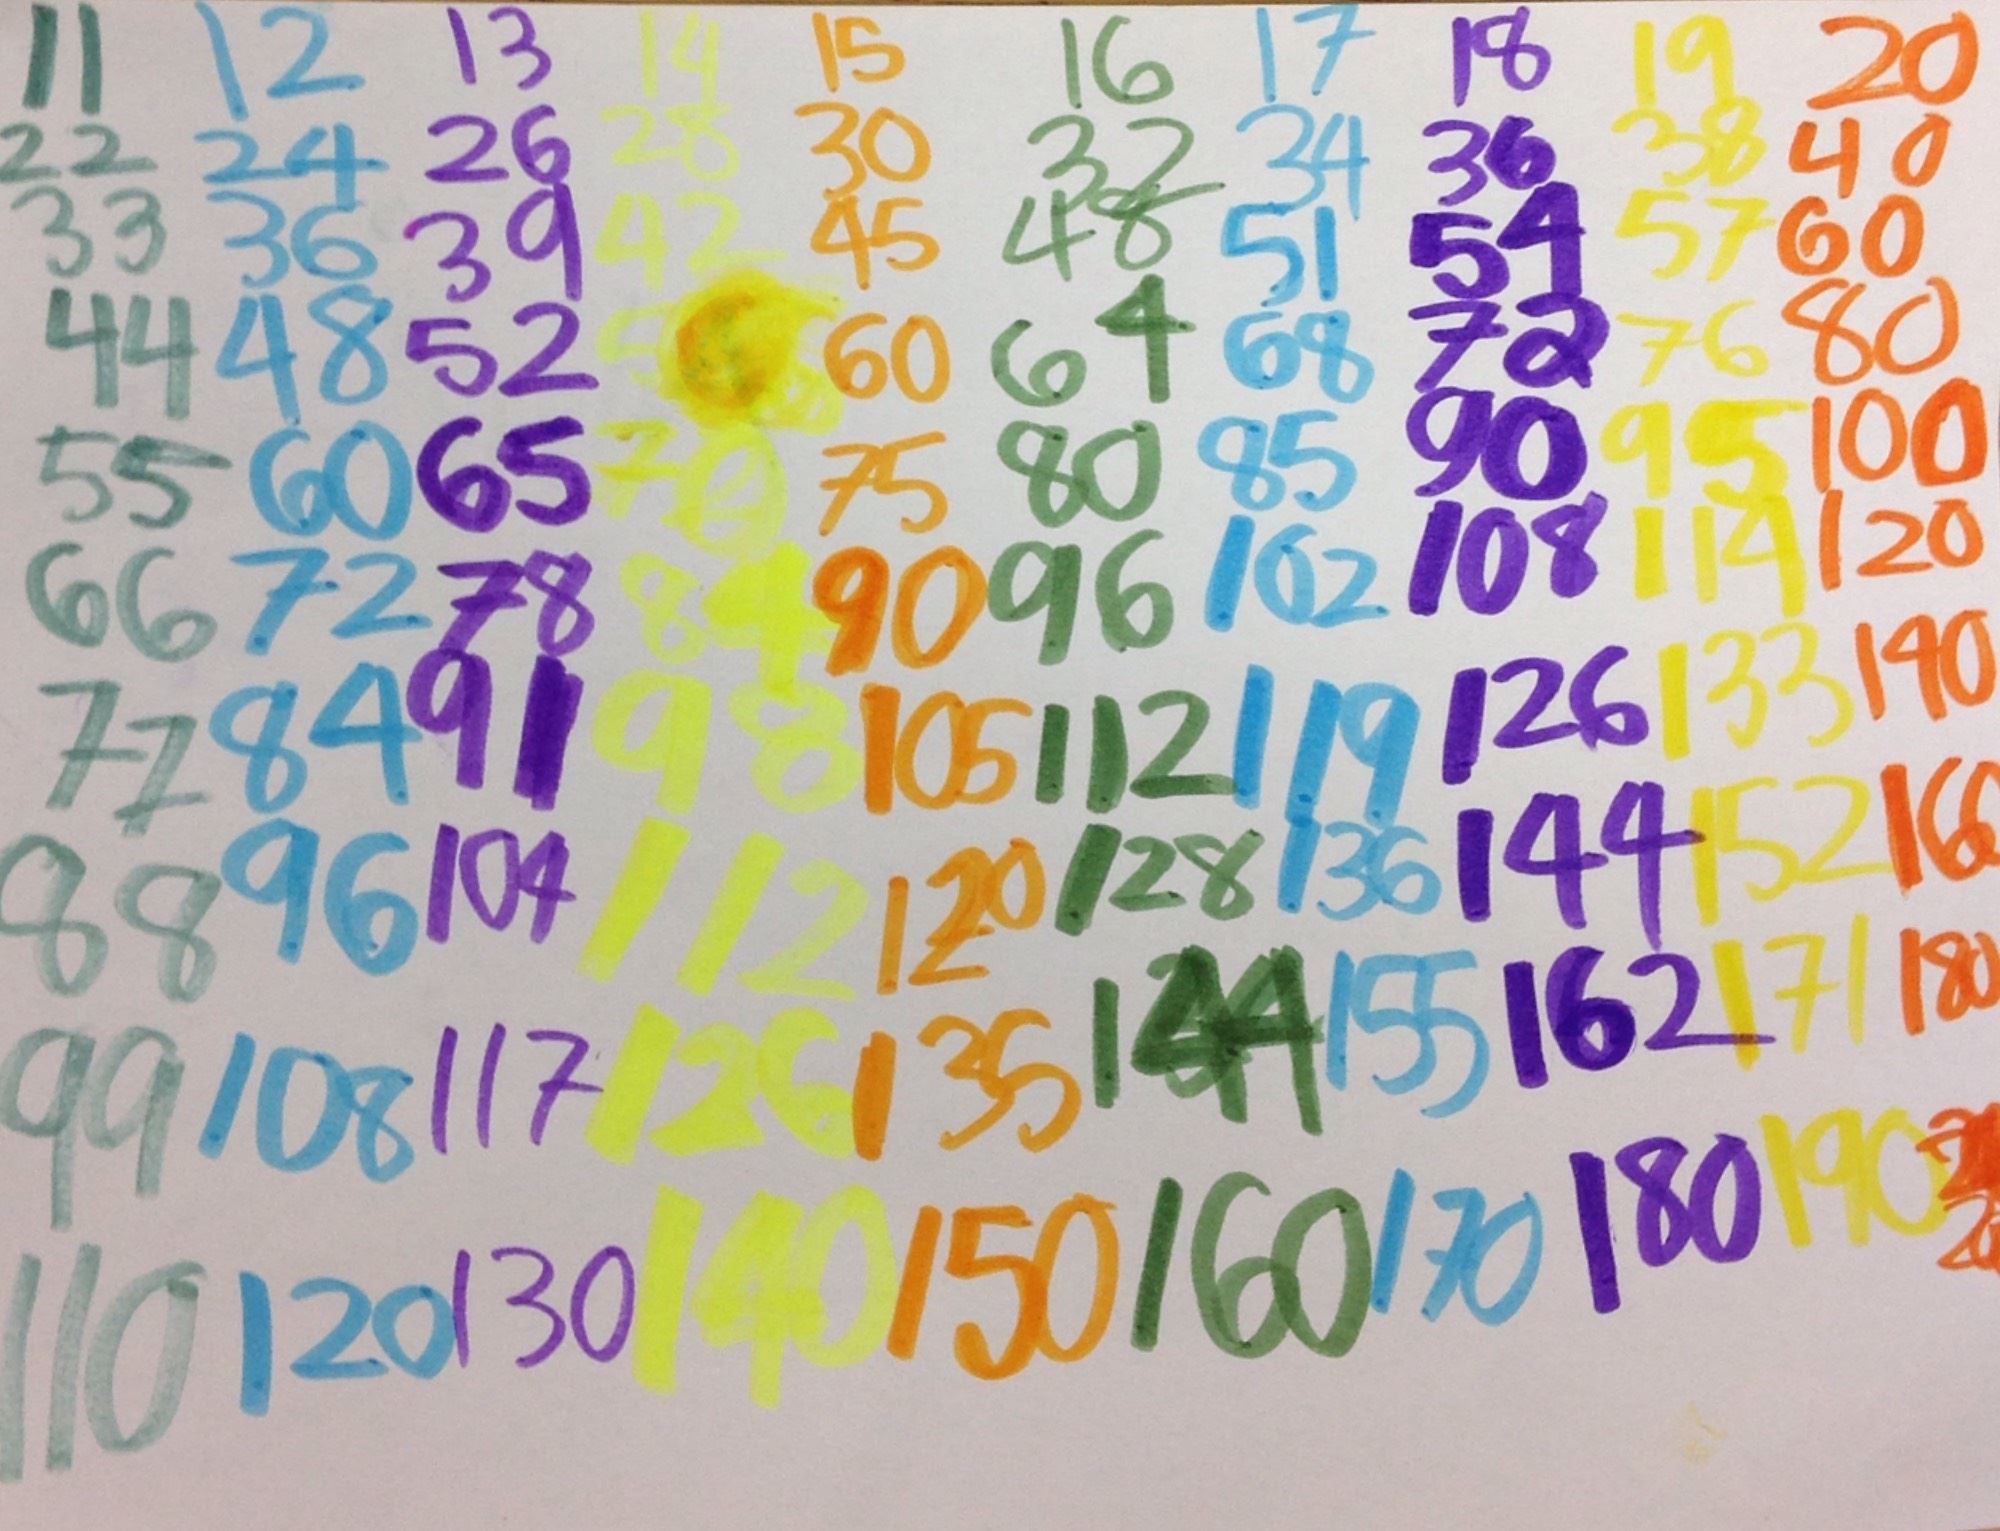 11 12 13 14 15 16 17 18 19 20
22 24 26 28 30 32 34 36 38 40
33 36 39 42 45 48 51 54 57 60
44 48 52 60 64 68 72 76 80
55 60 65 70 75 80 85 90 95 100
66 72 78 84 90 96 102 108 114 120
77 84 91 98 105 112 119 126 133 140
88 96 104 112 120 128 136 144 152 160
99 108 117 126 135 144 155 162 171 180
110 120 130 140 150 160 170 180 190